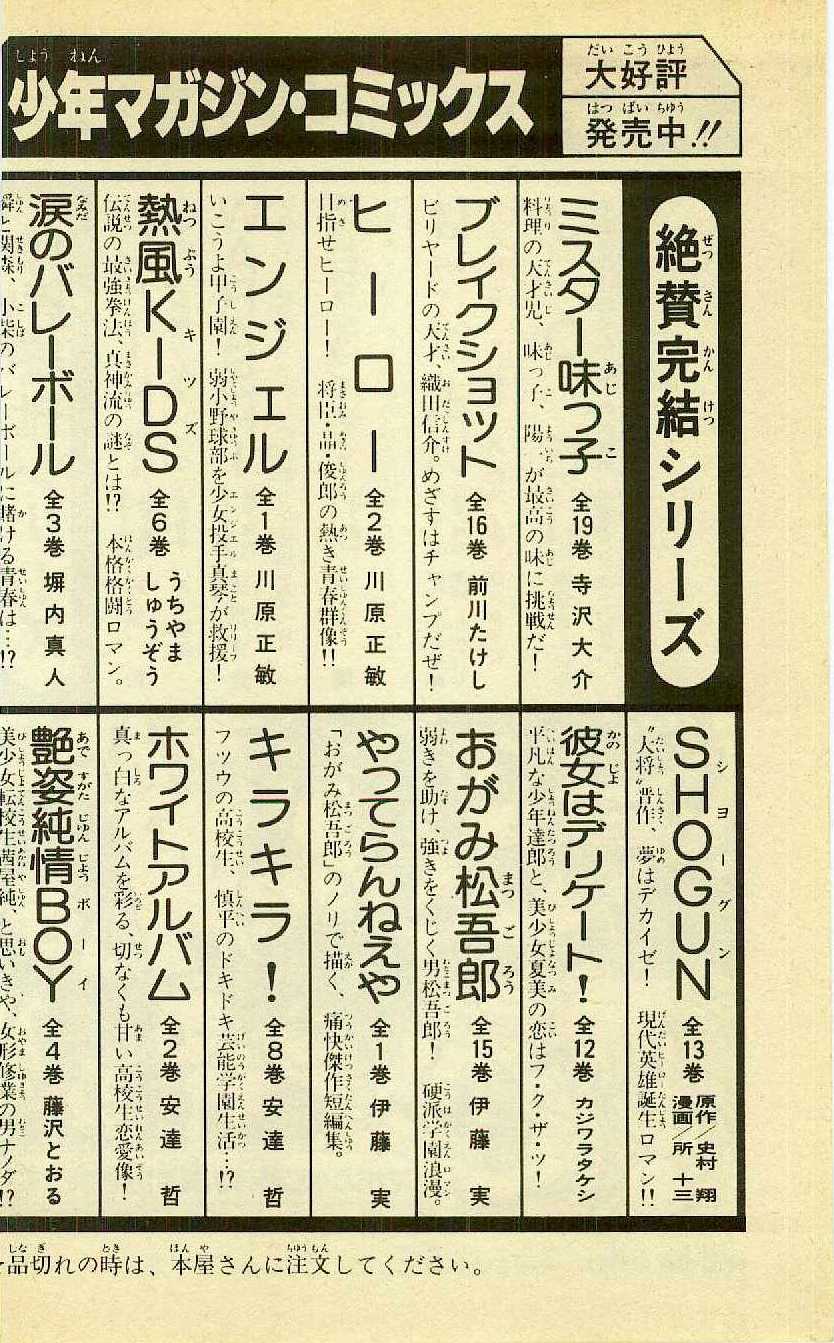 少年マガジン・コミックス
大好評
発売中!!
絶賛完結シリーズ
ミスター味っ子 全19巻 寺沢大介
料理の天才児、味っ子、陽一が最高の味に挑戦だ!
ブレイクショット 全16巻 前川たけし
ビリヤードの天才、織田信介。めざすはチャンプだぜ!
ヒーロー 全2巻 川原正敏
目指せヒーロー! 将臣・晶・俊郎の熱き青春群像!!
エンジェル 全1巻 川原正敏
いこうよ甲子園! 弱小野球部を少女投手真琴が救援!
熱風KIDS 全6巻 うちやましゅうぞう
伝説の最強拳法、真神流の謎とは!? 本格格闘ロマン。
涙のバレーボール 全3巻 塀内真人
舜と関森、小柴のバレーボールに賭ける青春は…!?
SHOGUN 全13巻 原作/史村 翔 漫画/所 十三
“大将”晋作、夢はデカイゼ! 現代英雄誕生ロマン!!
彼女はデリケート! 全12巻 カジワラタケシ
平凡な少年達郎と、美少女夏美の恋はフ・ク・ザ・ツ!
おがみ松吾郎 全15巻 伊藤 実
弱きを助け、強きをくじく男松吾郎! 硬派学園浪漫。
やってらんねえや 全1巻 伊藤 実
「おがみ松吾郎」のノリで描く、痛快傑作短編集。
キラキラ! 全8巻 安達 哲
フツウの高校生、慎平のドキドキ芸能学園生活…!?
ホワイトアルバム 全2巻 安達 哲
真っ白なアルバムを彩る、切なくも甘い高校生恋愛像!
艶姿純情BOY 全4巻 藤沢とおる
美少女転校生茜屋純、と思いきや、女形修業の男ナノダ!?
品切れの時は、本屋さんに注文してください。